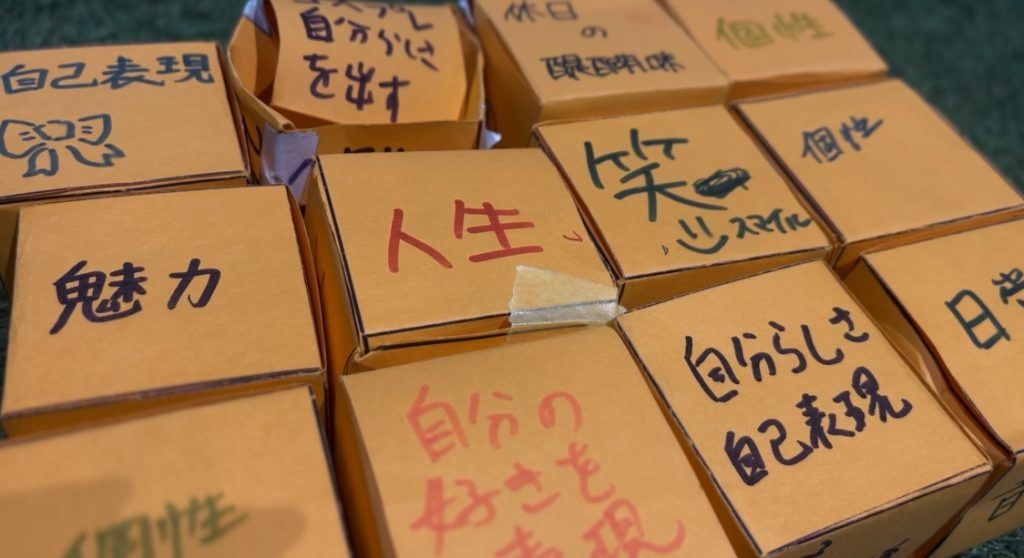 自己表現
自分らしさ
を出す
休日
の
醍醐味
個性
魅力
人生
笑
スマイル
個性
個性
自分の
好きさを
表現
自分らしさ
自己表現
日常